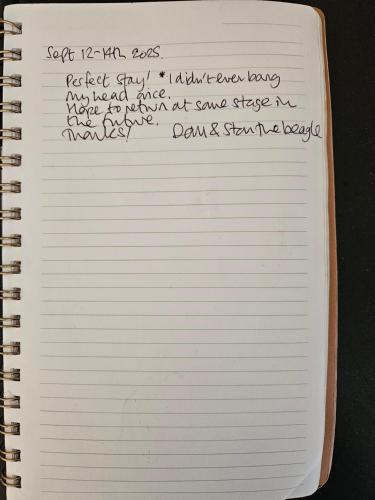 Sept 12-14th 2025.
Perfect stay! * I didn't even bang
my head once.
Hope to return at some stage in
the future.
Thanks! Dom & Stan the beagle